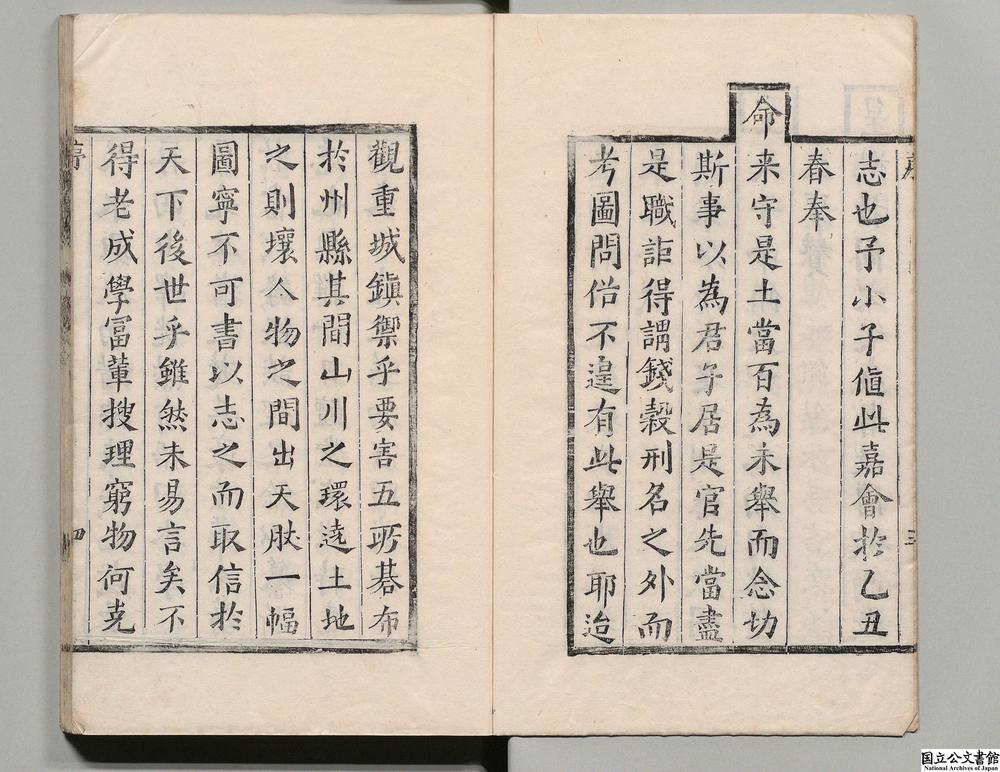 序 三
志也予小子値此嘉會扵乙丑
春奉
命来守是土當百為未舉而念切
斯事以為君子居是官先當盡
是職詎得謂錢穀刑名之外而
考圖問俗不遑有此舉也耶迨
觀重城鎮禦乎要害五所碁布
扵州縣其間山川之環遶土地
之則壤人物之間出天肰一幅
圖寧不可書以志之而取信扵
天下後世乎雖然未易言矣不
得老成學冨輩搜理窮物何克
序 四
国立公文書館
National Archives of Japan